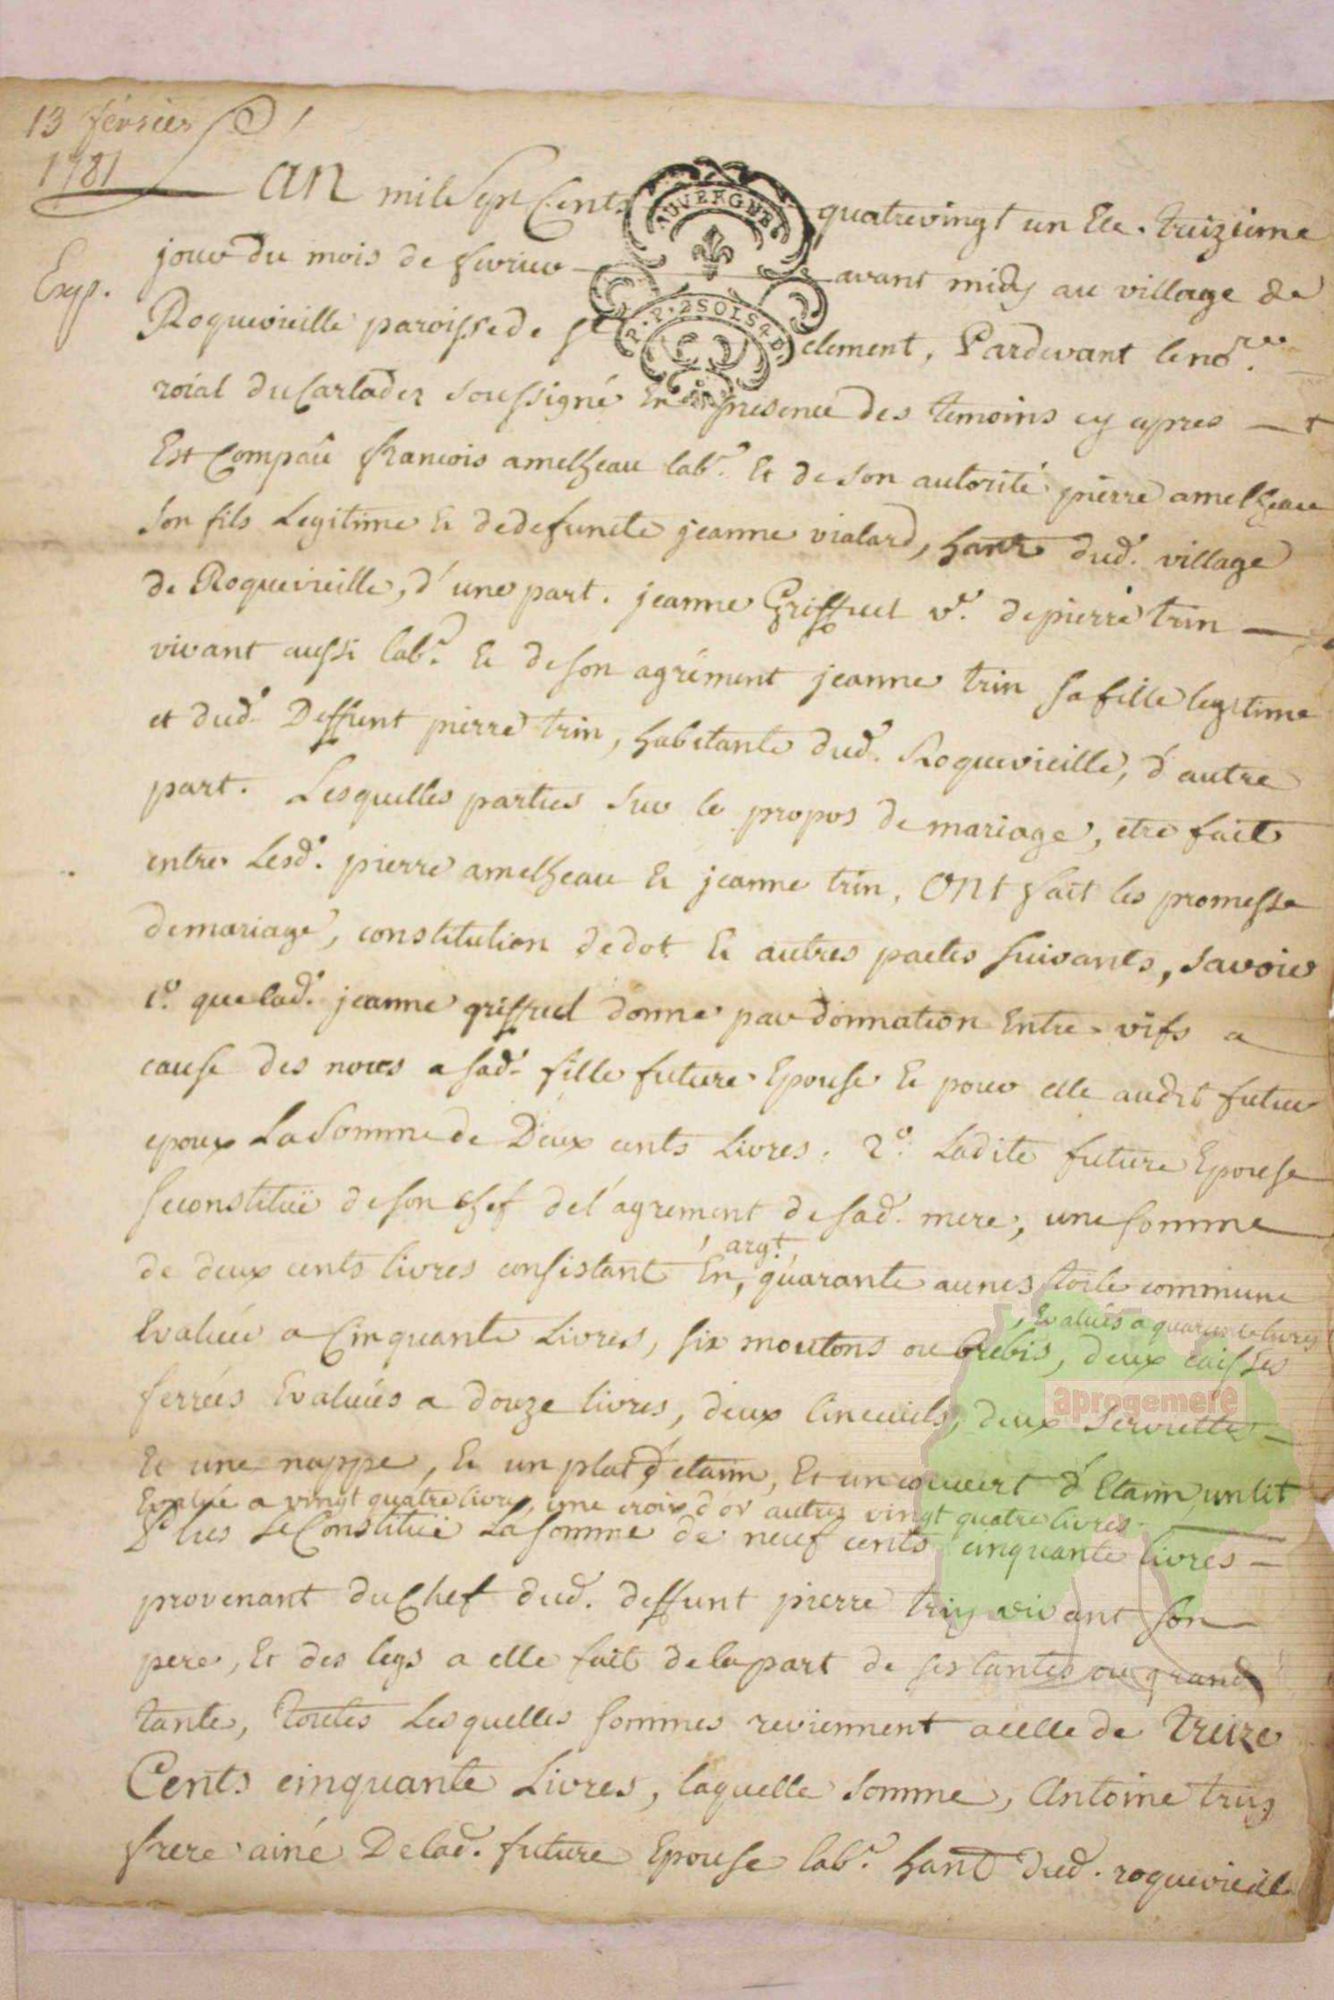 13 février
1781
Exp.
L'AN mil Sept Cents quatrevingt un Et le treizieme
AUVERGNE
P.P. 2 SOLS 4 D.
jour du mois de fevrier avant midy au village de
Roquevieille paroisse de St clement, Pardevant le no.re
roial du Carladez soussigné En presence des temoins cy apres
Est Comparû francois amelheau lab.r Et de son autorité pierre amelheau
son fils Legitime Et de defuncte jeanne vialard, hants dud. village
de Roquevieille, d'une part. jeanne Griffuel v.e de pierre trin
vivant aussi lab.r Et de son agrément jeanne trin sa fille legitime
et dud. Deffunt pierre trin, habitante dud. Roquevieille, d'autre
part. Lesquelles parties sur le propos de mariage, etre fait
entre Lesd. pierre amelheau Et jeanne trin, ONt fait les promesse
de mariage, constitution de dot Et autres pactes suivants, savoir
1.o que lad. jeanne griffuel donne par donnation Entre vifs a
cause des noces a sad. fille future Epouse Et pour elle audit futur
epoux La Somme de Deux cents Livres. 2.o Ladite future Epouse
se constituë de son chef de l'agrement de sad. mere, une somme
argt.
de deux cents livres consistant En, quarante aunes toile commune
, Evalués a quarante livres
Evaluée a Cinquante Livres, six moutons ou brebis, deux caisses
ferrées Evaluées a douze livres, deux linceuils, deux serviettes
aprogemere
Et une nappe, Et un plat d'etaim, Et un couvert d'Etaim, un lit
Evalué a vingt quatre livres, une croix d'or autres vingt quatre livres
Plus se Constituë La somme de neuf cents cinquante livres
provenant du Chef dud. deffunt pierre trin vivant son
pere, Et des legs a elle fait de la part de ses tantes ou grand
tante, toutes Lesquelles sommes reviennent a celle de treize
Cents cinquante Livres, laquelle somme, Antoine trin
frere ainé De lad. future Epouse lab.r hant dud. roquevieille